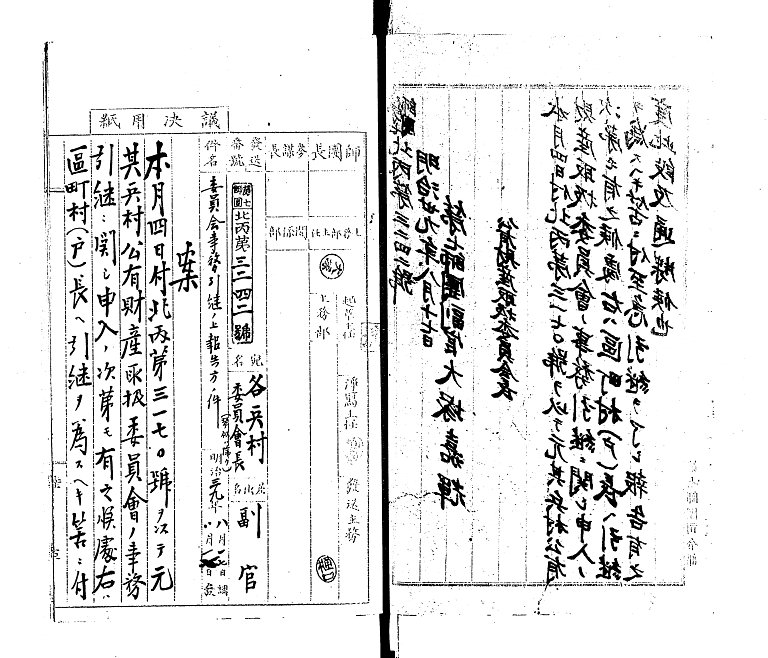 議決用紙
師團長
參謀長
發送番號
第七師團 北丙第三二四二號
件名
委員會事務引継ノ上報告方ノ件
明治三九年八月
上務部
宛名
各兵村
委員會長
副官
淨寫主任
發送主務
樋口
案
本月四日付北丙第三一七〇號ヲ以テ元
其兵村公有財産取扱委員會ノ事務
引継ニ関シ申入ノ次第モ有之候處右ハ
區町村(戸)長ヘ引継ヲ為スヘキ筈ニ付
師團北丙第三二四二號
明治卅九年八月十七日
第七師團副官大塚嘉輝
公有財産取扱委員會長
本月四日付北丙第三一七〇號ヲ以テ元其兵村公有
財産取扱委員會ノ事務引継ニ関シ申入ノ
次第モ有之候處右ハ區町村(戸)長ヘ引継
ヲ為スヘキ筈ニ付至急引継ヲ了シ報告有之
度此段及通牒候也